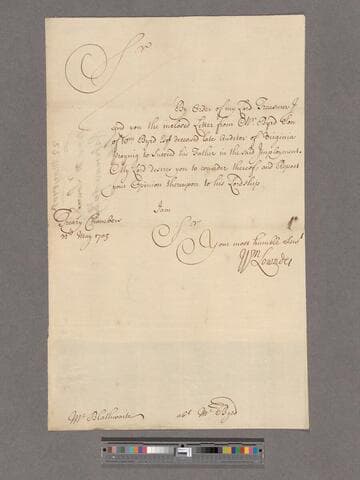 Sr
By Order of my Lord Treasurer I
send you the inclosed Letter from Mr. Byrd Son
of Wm Byrd Esqr deceased late Auditor of Virginia
praying to succeed his Father in the said Imployment.
My Lord desires you to consider thereof, and Report
your Opinion thereupon to his Lordship
I am
Treary Chambers
May 1705
Sr
Your most humble Servt
Wm Lowndes
Mr. Blathwayte
abt Mr Byrd